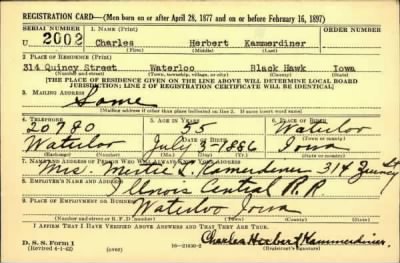 REGISTRATION CARD—(Men born on or after April 28, 1877 and on or before February 16, 1897)
SERIAL NUMBER 1. NAME (Print) ORDER NUMBER
U 2002 Charles Herbert Kammerdiner
(First) (Middle) (Last)
2. PLACE OF RESIDENCE (Print)
314 Quincy Street Waterloo Black Hawk Iowa
(Number and street) (Town, township, village, or city) (County) (State)
[THE PLACE OF RESIDENCE GIVEN ON THE LINE ABOVE WILL DETERMINE LOCAL BOARD
JURISDICTION; LINE 2 OF REGISTRATION CERTIFICATE WILL BE IDENTICAL]
3. MAILING ADDRESS
Same
[Mailing address if other than place indicated on line 2. If same insert word same]
4. TELEPHONE 5. AGE IN YEARS 6. PLACE OF BIRTH
20780 55 Waterloo
DATE OF BIRTH (Town or county)
Waterloo July 3-1886 Iowa
(Exchange) (Number) (Mo.) (Day) (Yr.) (State or country)
7. NAME AND ADDRESS OF PERSON WHO WILL ALWAYS KNOW YOUR ADDRESS
Mrs. Mertie L. Kamerdener 314 Quincy St
8. EMPLOYER'S NAME AND ADDRESS
Illinois Central R.R
9. PLACE OF EMPLOYMENT OR BUSINESS
Waterloo Iowa
(Number and street or R. F. D. number) (Town) (County) (State)
I AFFIRM THAT I HAVE VERIFIED ABOVE ANSWERS AND THAT THEY ARE TRUE.
D. S. S. Form 1
(Revised 4-1-42) (over) 16—21630-2 Charles Herbert Kammerdiner
(Registrant's signature)